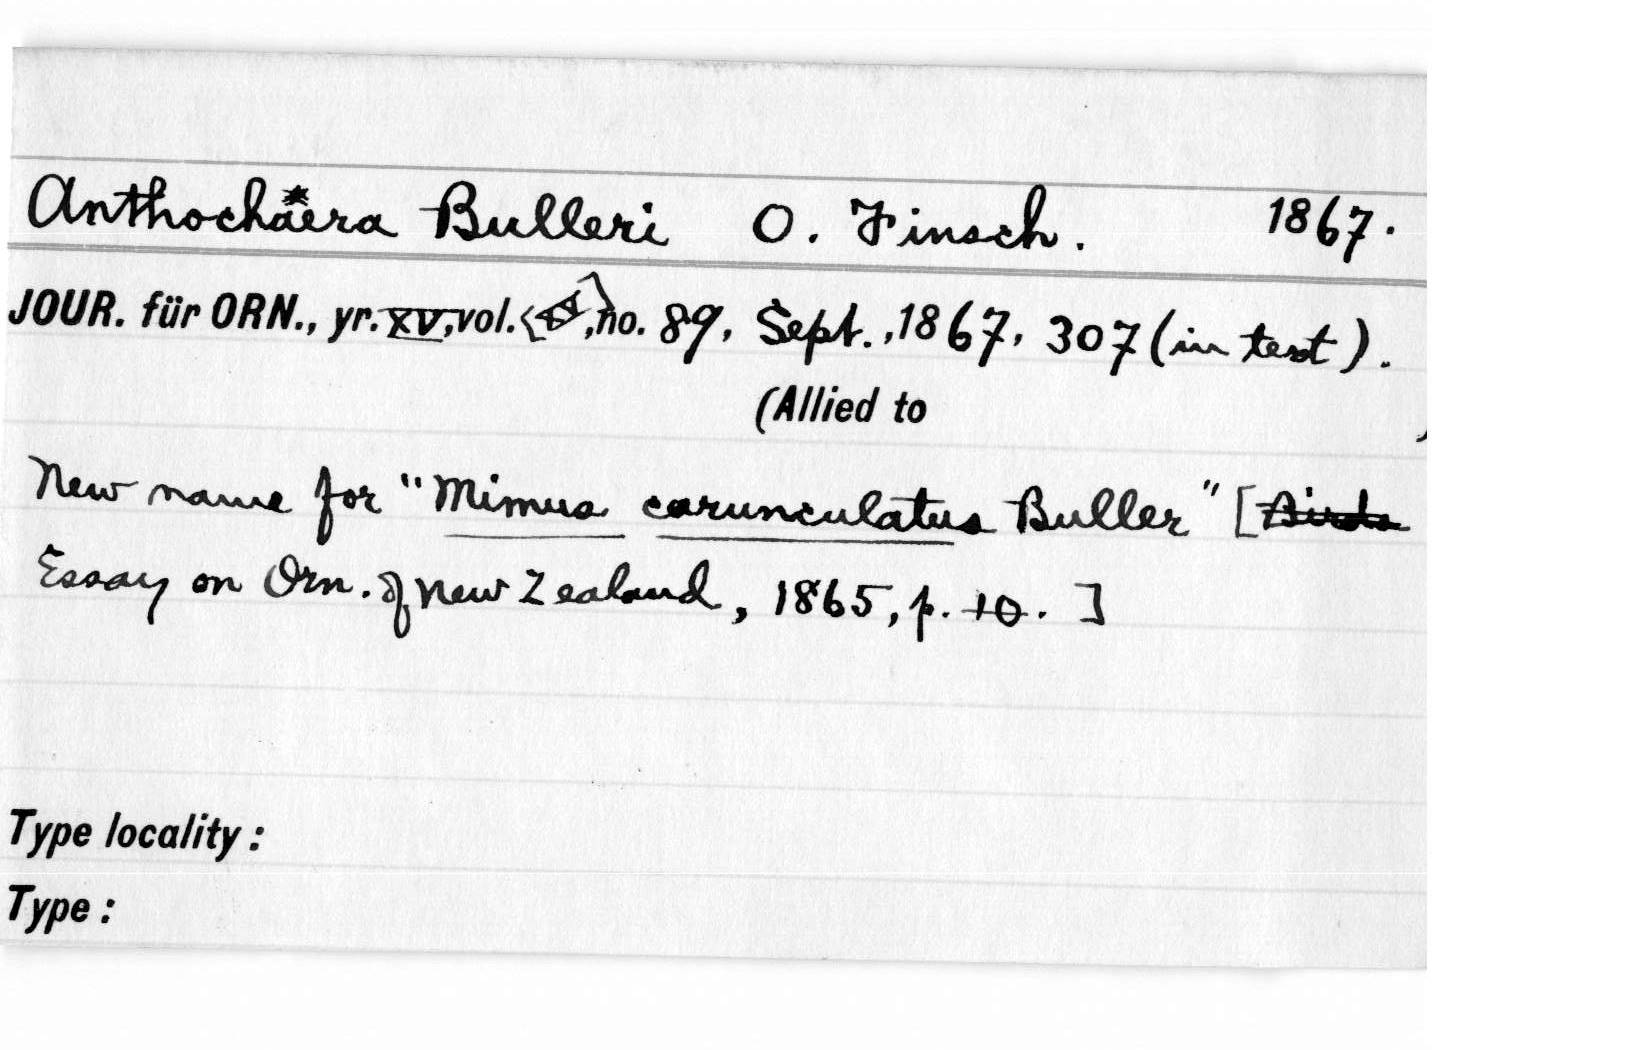 Anthochaera Bulleri O. Finsch. 1867.
JOUR. für ORN., yr. XV, vol. , no. 89, Sept., 1867, 307 (in text).
(Allied to )
New name for "Mimus carunculatus Buller" [Birds
Essay on Orn. of New Zealand, 1865, p. 10. ]
Type locality :
Type :